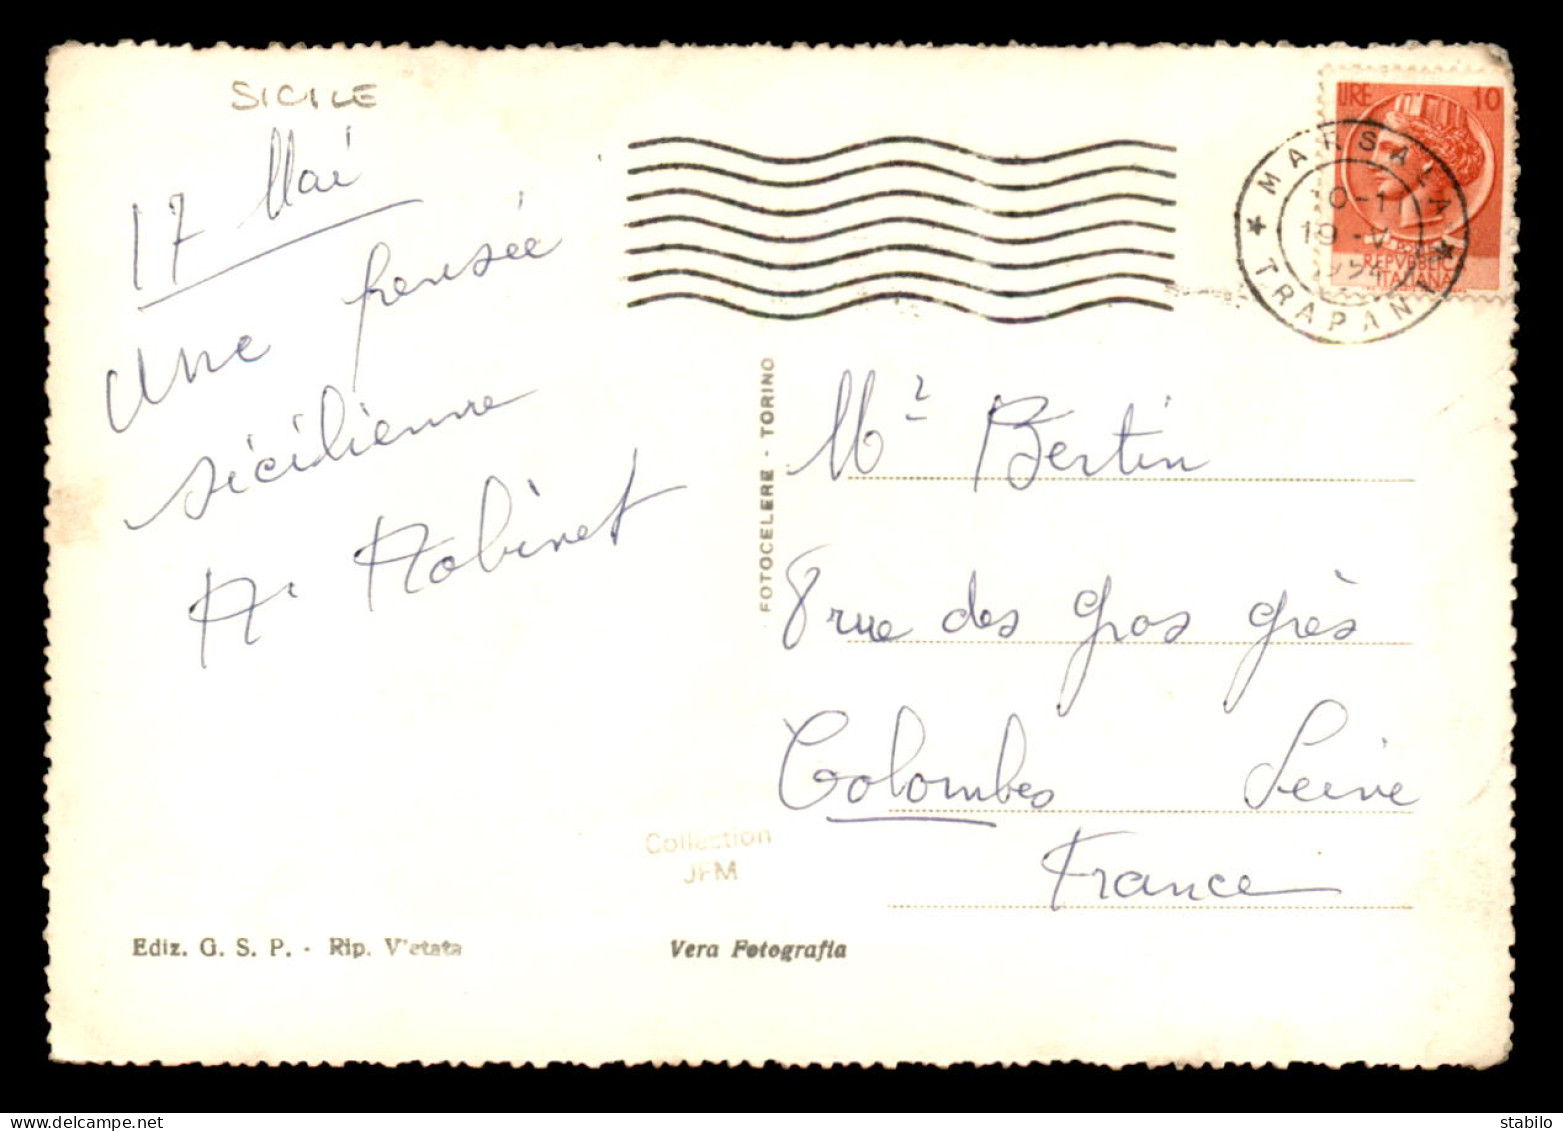 SICILE
17 Mai
une pensée
sicilienne
A. Robinet
LIRE 10
REPVBBLICA
ITALIANA
MARSALA
19-V
1954
* TRAPANI *
FOTOCELERE - TORINO
Mr Bertin
8 rue des gros grès
Colombes Seine
France
Collection
JFM
Ediz. G. S. P. - Rip. Vietata
Vera Fotografia
stabilo